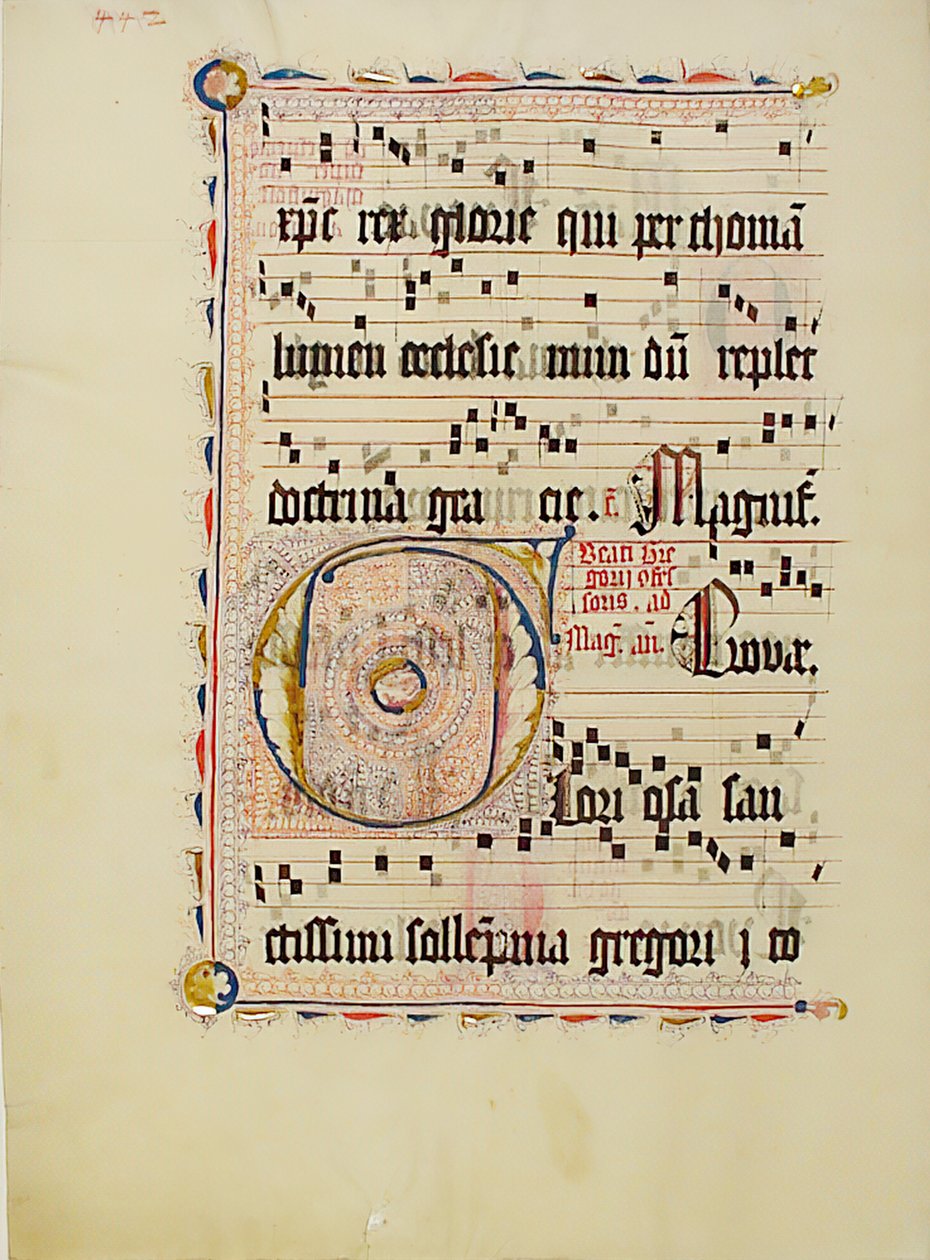 442
xp̄e rex glorie qui per thomā
lumen ecclesie mundū replet
doctrina gracie. Magnif̄.
Beati Gre
gorij ꝯfes
soris. ad
Mag̃. añ.
Gloriosa san
ctissimi sollēpnia gregorij to